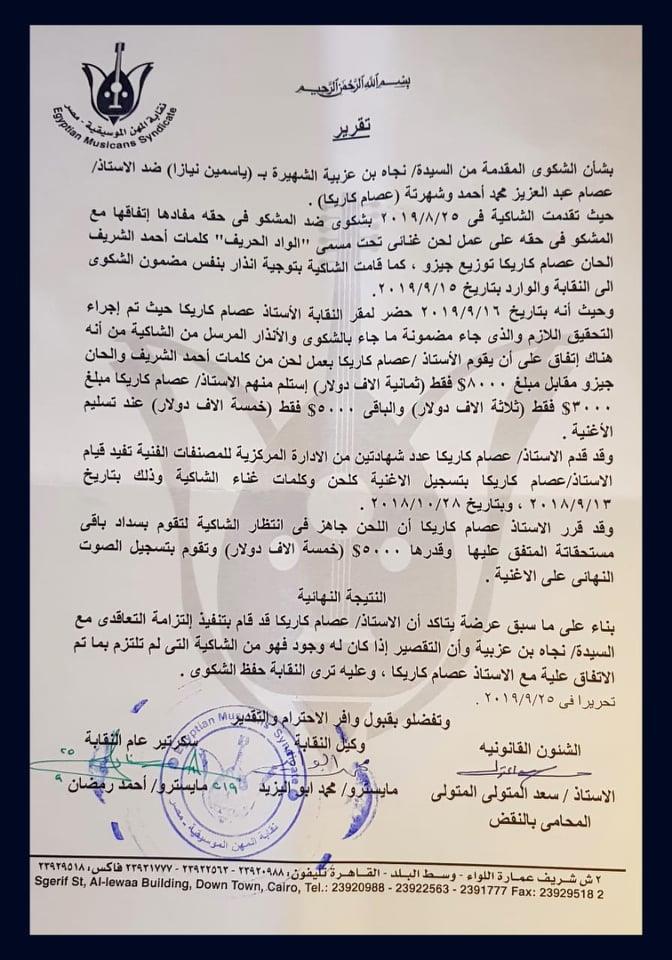 بسم الله الرحمن الرحيم
نقابة المهن الموسيقية - مصر
Egyptian Musicans Syndicate
تقرير
بشأن الشكوى المقدمة من السيدة/ نجاه بن عزبية الشهيرة بـ (ياسمين نيازا) ضد الاستاذ/
عصام عبد العزيز محمد أحمد وشهرتة (عصام كاريكا) .
حيث تقدمت الشاكية فى ٢٠١٩/٨/٢٥ بشكوى ضد المشكو فى حقه مفادها إتفاقها مع
المشكو فى حقه على عمل لحن غنائى تحت مسمى "الواد الحريف" كلمات أحمد الشريف
الحان عصام كاريكا توزيع جيزو ، كما قامت الشاكية بتوجية انذار بنفس مضمون الشكوى
الى النقابة والوارد بتاريخ ٢٠١٩/٩/١٥.
وحيث أنه بتاريخ ٢٠١٩/٩/١٦ حضر لمقر النقابة الأستاذ عصام كاريكا حيث تم إجراء
التحقيق اللازم والذى جاء مضمونة ما جاء بالشكوى والأنذار المرسل من الشاكية من أنه
هناك إتفاق على أن يقوم الأستاذ /عصام كاريكا بعمل لحن من كلمات أحمد الشريف والحان
جيزو مقابل مبلغ ٨٠٠٠$ فقط (ثمانية الاف دولار) إستلم منهم الاستاذ/ عصام كاريكا مبلغ
٣٠٠٠$ فقط (ثلاثة الاف دولار) والباقى ٥٠٠٠$ فقط (خمسة الاف دولار) عند تسليم
الأغنية .
وقد قدم الاستاذ/ عصام كاريكا عدد شهادتين من الادارة المركزية للمصنفات الفنية تفيد قيام
الاستاذ/عصام كاريكا بتسجيل الاغنية كلحن وكلمات غناء الشاكية وذلك بتاريخ
٢٠١٨/٩/١٣ ، وبتاريخ ٢٠١٨/١٠/٢٨ .
وقد قرر الاستاذ عصام كاريكا أن اللحن جاهز فى انتظار الشاكية لتقوم بسداد باقى
مستحقاتة المتفق عليها وقدرها ٥٠٠٠$ (خمسة الاف دولار) وتقوم بتسجيل الصوت
النهائى على الاغنية .
النتيجة النهائية
بناء على ما سبق عرضة يتاكد أن الاستاذ/ عصام كاريكا قد قام بتنفيذ إلتزامة التعاقدى مع
السيدة/ نجاه بن عزبية وأن التقصير إذا كان له وجود فهو من الشاكية التى لم تلتزم بما تم
الاتفاق علية مع الاستاذ عصام كاريكا ، وعليه ترى النقابة حفظ الشكوى .
تحريرا فى ٢٠١٩/٩/٢٥ .
وتفضلو بقبول وافر الاحترام والتقدير
الشئون القانونيه
وكيل النقابة
سكرتير عام النقابة
الاستاذ / سعد المتولى المتولى
المحامى بالنقض
مايسترو/ محمد ابو اليزيد
مايسترو/ أحمد رمضان
Egyptian Musicans Syndicate
نقابة المهن الموسيقية - مصر
٢ ش شريف عمارة اللواء - وسط البلد - القاهرة تليفون: ٢٣٩٢٠٩٨٨ - ٢٣٩٢٢٥٦٣ - ٢٣٩١٧٧٧ فاكس: ٢٣٩٢٩٥١٨
Sgerif St, Al-lewaa Building, Down Town, Cairo, Tel.: 23920988 - 23922563 - 2391777 Fax: 23929518 2